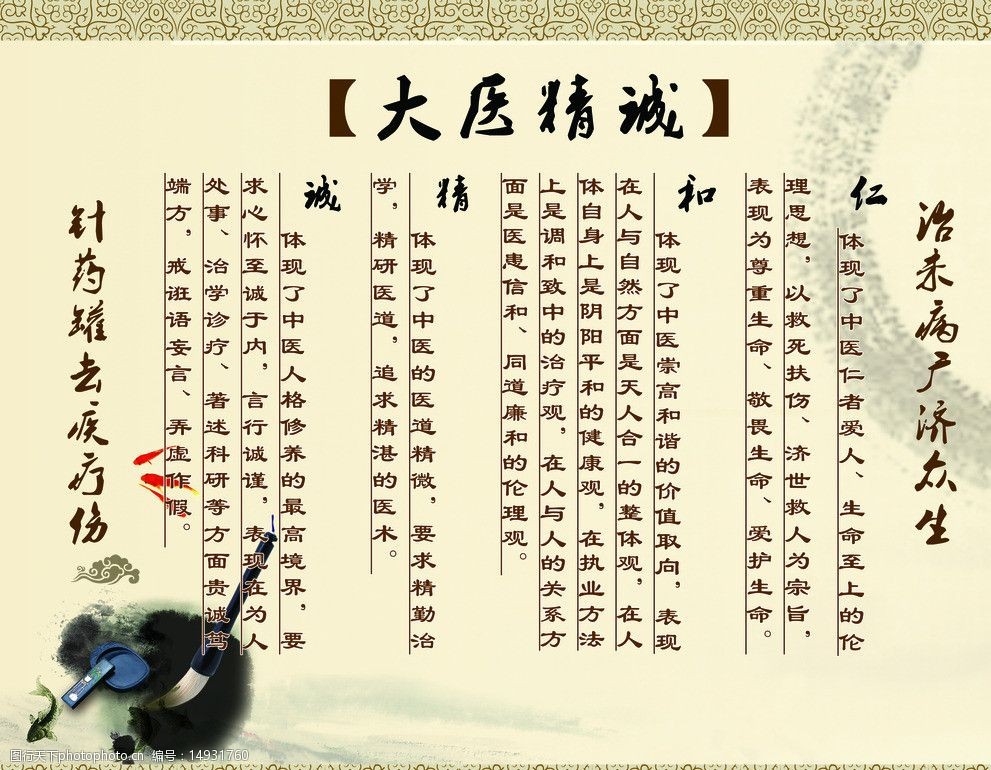 【大医精诚】
治未病广济众生
仁
体现了中医仁者爱人、生命至上的伦
理思想，以救死扶伤、济世救人为宗旨，
表现为尊重生命、敬畏生命、爱护生命。
和
体现了中医崇高和谐的价值取向，表现
在人与自然方面是天人合一的整体观，在人
体自身上是阴阳平和的健康观，在执业方法
上是调和致中的治疗观，在人与人的关系方
面是医患信和、同道廉和的伦理观。
精
体现了中医的医道精微，要求精勤治
学，精研医道，追求精湛的医术。
诚
体现了中医人格修养的最高境界，要
求心怀至诚于内，言行诚谨，表现在为人
处事、治学诊疗、著述科研等方面贵诚笃
端方，戒诳语妄言、弄虚作假。
针药罐去疾疗伤
图行天下photophoto.cn 编号：14931760